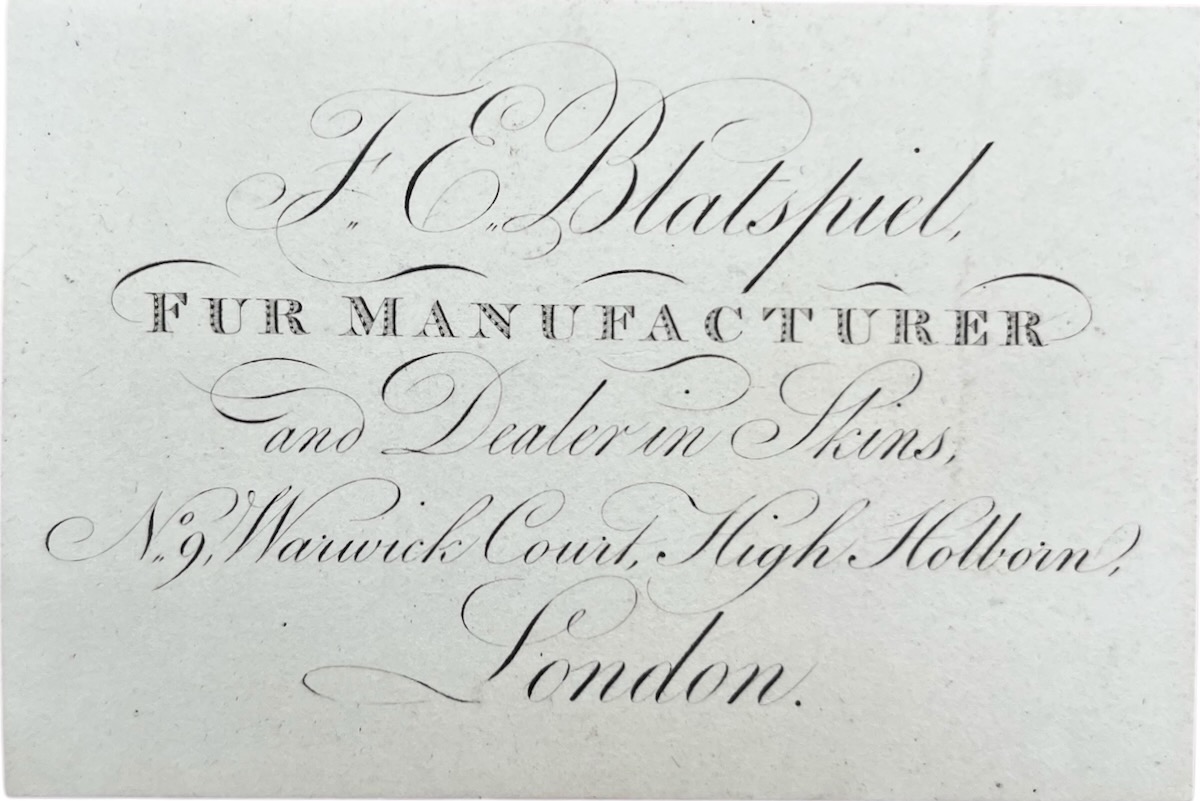 F,, E,, Blatspiel,
FUR MANUFACTURER
and Dealer in Skins,
No. 9, Warwick Court, High Holborn,
London.